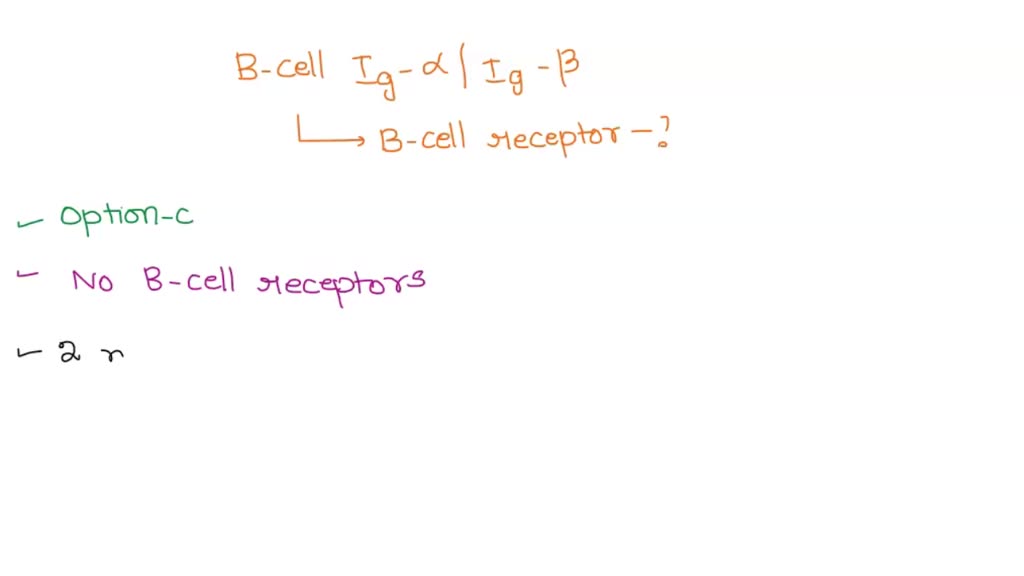 B-cell Ig-α | Ig-β
B-cell receptor-?
Option-C
No B-cell receptors
2 r